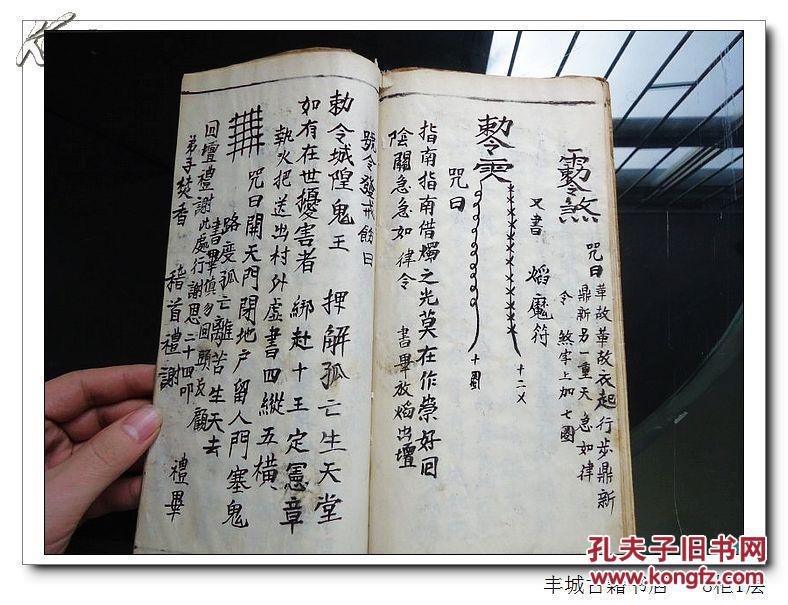 靈煞
咒曰華故華故衣起行步鼎新
鼎新另一重天 急如律
令 煞字上加七圈
又書 焰魔符
十二乂
勅令
十圈
咒曰
指南指南借燭之光莫在作祟好回
陰關急急如律令 書畢放焰出壇
號令
勅令城隍鬼王 押解孤亡生天堂
如有在世擾害者 綁赴十王定憲章
執火把送出村外虛書四縱五橫
咒曰開天門閉地户留人門塞鬼
路度孤亡離苦生天去
書畢慎勿回頭反顧
回壇禮謝此處行謝恩二十四叩
弟子焚香 稽首禮謝 禮畢
孔夫子旧书网
www.kongfz.com
丰城古籍书店